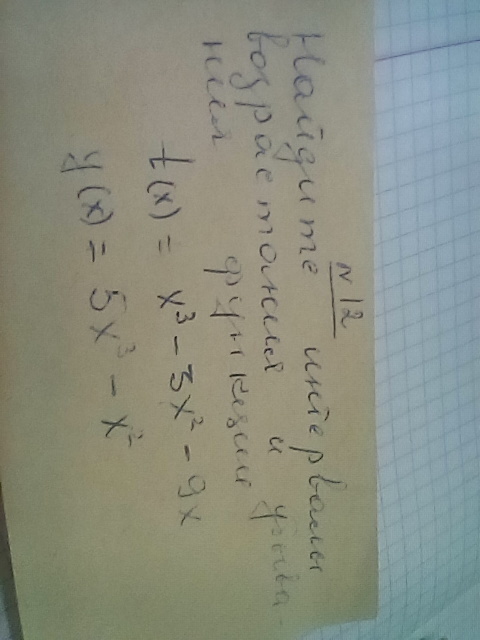 N 12
Найдите интервалы
возрастания и убыва-
ния функции
f(x) = x³ - 3x² - 9x
y(x) = 5x³ - x²